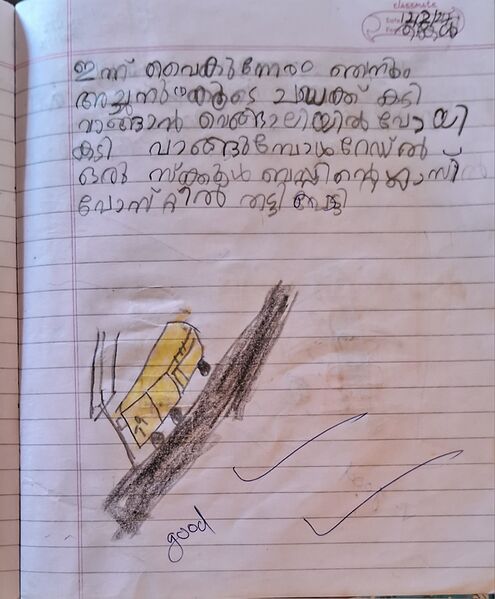 classmate
Date 12/2/25
Page
ഇന്ന് വൈകുന്നേരം ഞാനും
അച്ഛനും കൂടെ ചായക്ക് കടി
വാങ്ങാൻ വെങ്ങാലിയിൽ പോയി
കടി വാങ്ങുമ്പോൾ റേഡിൽ
ഒരു സ്ക്കൂൾ ബസ്സിന്റെ ഗ്ലാസിൽ
പോസ്റ്റിൽ തട്ടി പൊട്ടി
good